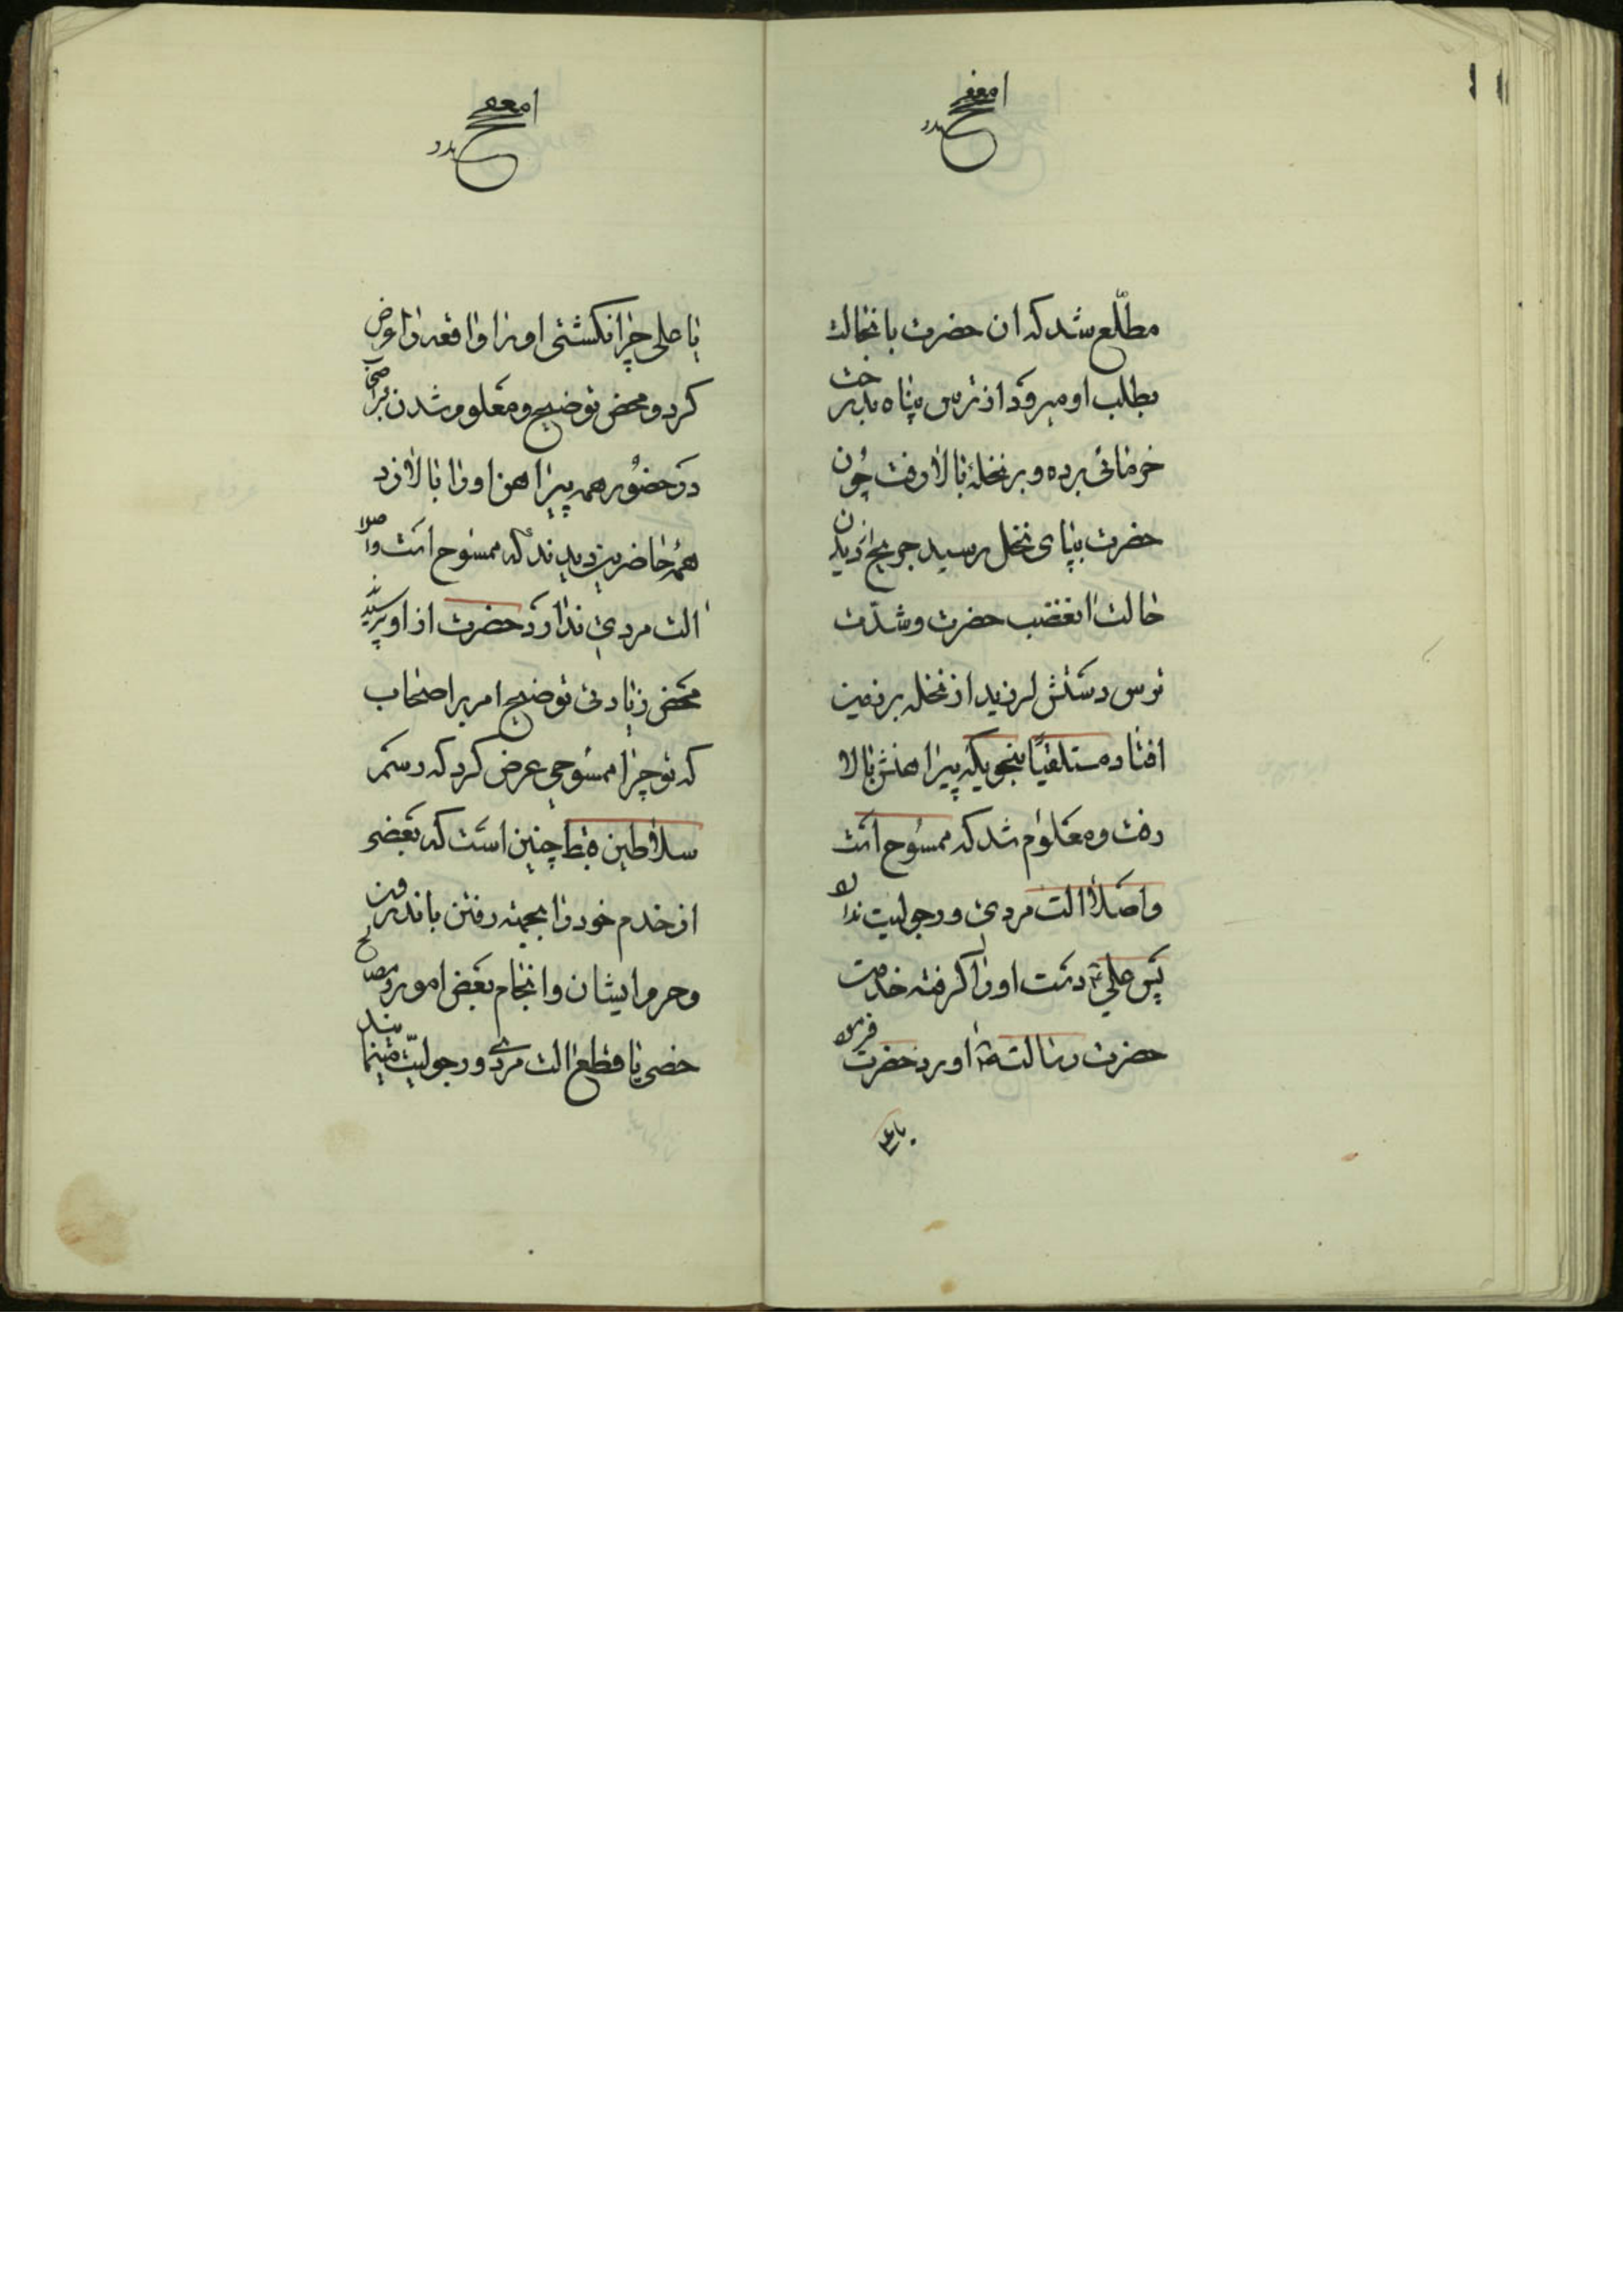 مطلّع شد که ان حضرت بانحالت
بطلب او میرود از ترس پناه بدرخت
خرمائی برده و بر نخله بالا رفت چون
حضرت بپای نخل رسید جریح از دیدن
حالت غضب حضرت و شدّت
ترس دستش لرزید از نخله بر زمین
افتاد مستلقیًا بنحویکه پیراهنش بالا
رفت و معلوم شد که ممسوح است
و اصلاً الت مردی و رجولیت ندارد
پس علی دست او را گرفته خدمت
حضرت رسالت آورد حضرت فرمود
یا علی
یا علی چرا نکشتی او را واقعه را عرض
کرد و محض توضیح و معلوم شدن بر اصحاب
در حضور همه پیراهن او را بالا زد
همه حاضرین دیدند که ممسوح است و اصلا
الت مردی ندارد حضرت از او پرسیدند
محض زیادتی توضیح امر بر اصحاب
که تو چرا ممسوحی عرض کرد که رسم
سلاطین قبط چنین است که بعضی
از خدم خود را بجهته رفتن باندرون
و حرم ایشان و انجام بعض امور و مصالح
خصی یا قطع الت مردی و رجولیّت مینمایند